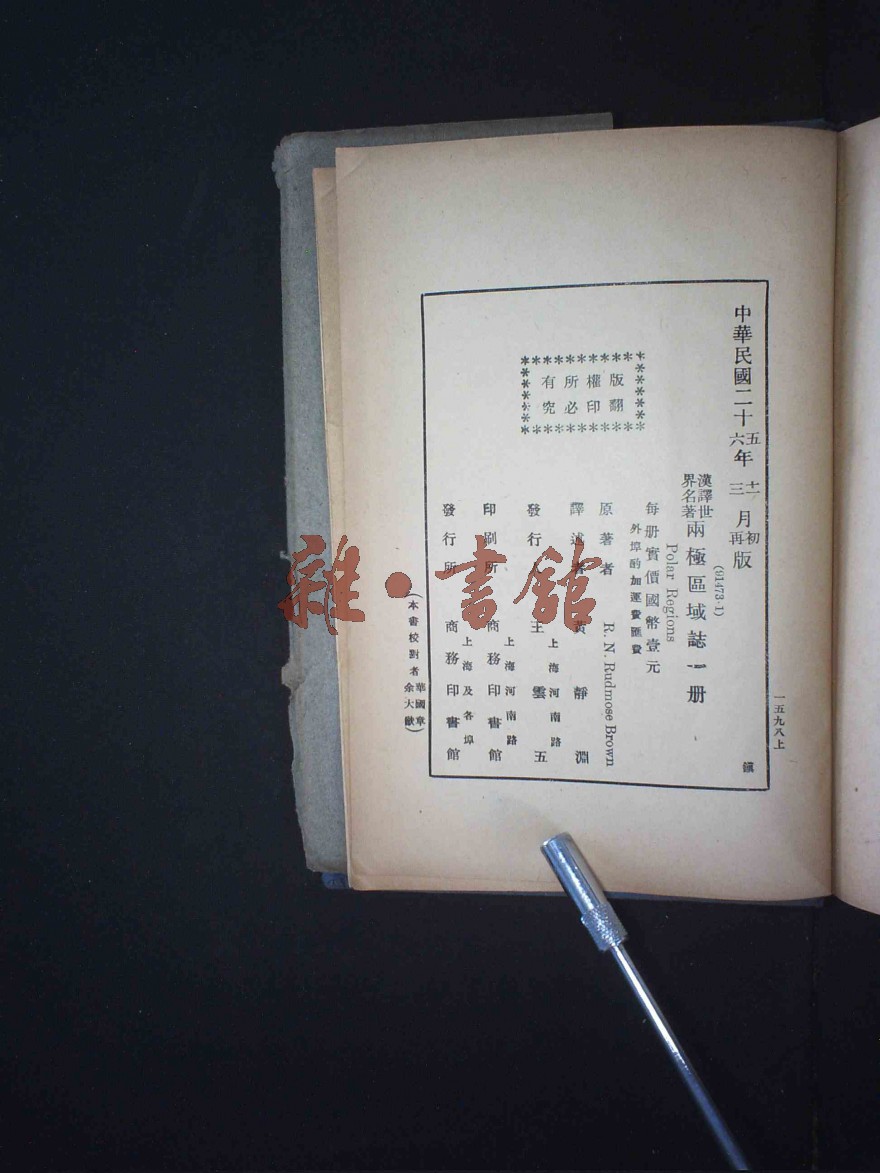 中華民國二十五年十二月初版
六 三 再
(91473-1)
漢譯世界名著 兩極區域誌一册
Polar Regions
每册實價國幣壹元
外埠酌加運費匯費
原著者 R. N. Rudmose Brown
譯述者 黃靜淵
發行人 王雲五
上海河南路
印刷所 商務印書館
上海河南路
發行所 商務印書館
上海及各埠
版權所有
翻印必究
(本書校對者 華國章 余大猷)
一五九八上
雜·書館